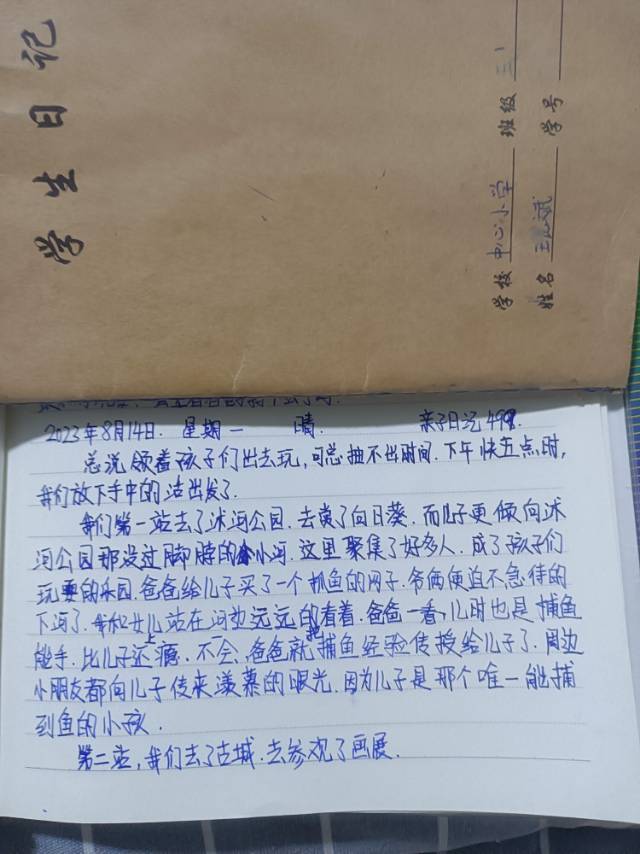 学生日记
学校 中心小学 班级 三1
姓名 王 斌 学号
2023年8月14日. 星期一 晴. 亲子日记499.
总说领着孩子们出去玩,可总抽不出时间.下午快五点时,
我们放下手中的活出发了.
我们第一站去了沭河公园.去赏了向日葵.而儿子更倾向沭
河公园那没过脚脖的小河.这里聚集了好多人.成了孩子们
玩耍的乐园.爸爸给儿子买了一个抓鱼的网子.爷俩便迫不急待的
下河了.我和女儿站在河边远远的看着.爸爸一看,儿时也是捕鱼
能手.比儿子还上瘾.不一会、爸爸就把捕鱼经验传授给儿子了.周边
小朋友都向儿子传来羡慕的眼光.因为儿子是那个唯一能捕
到鱼的小孩.
第二站,我们去了古城.去参观了画展.